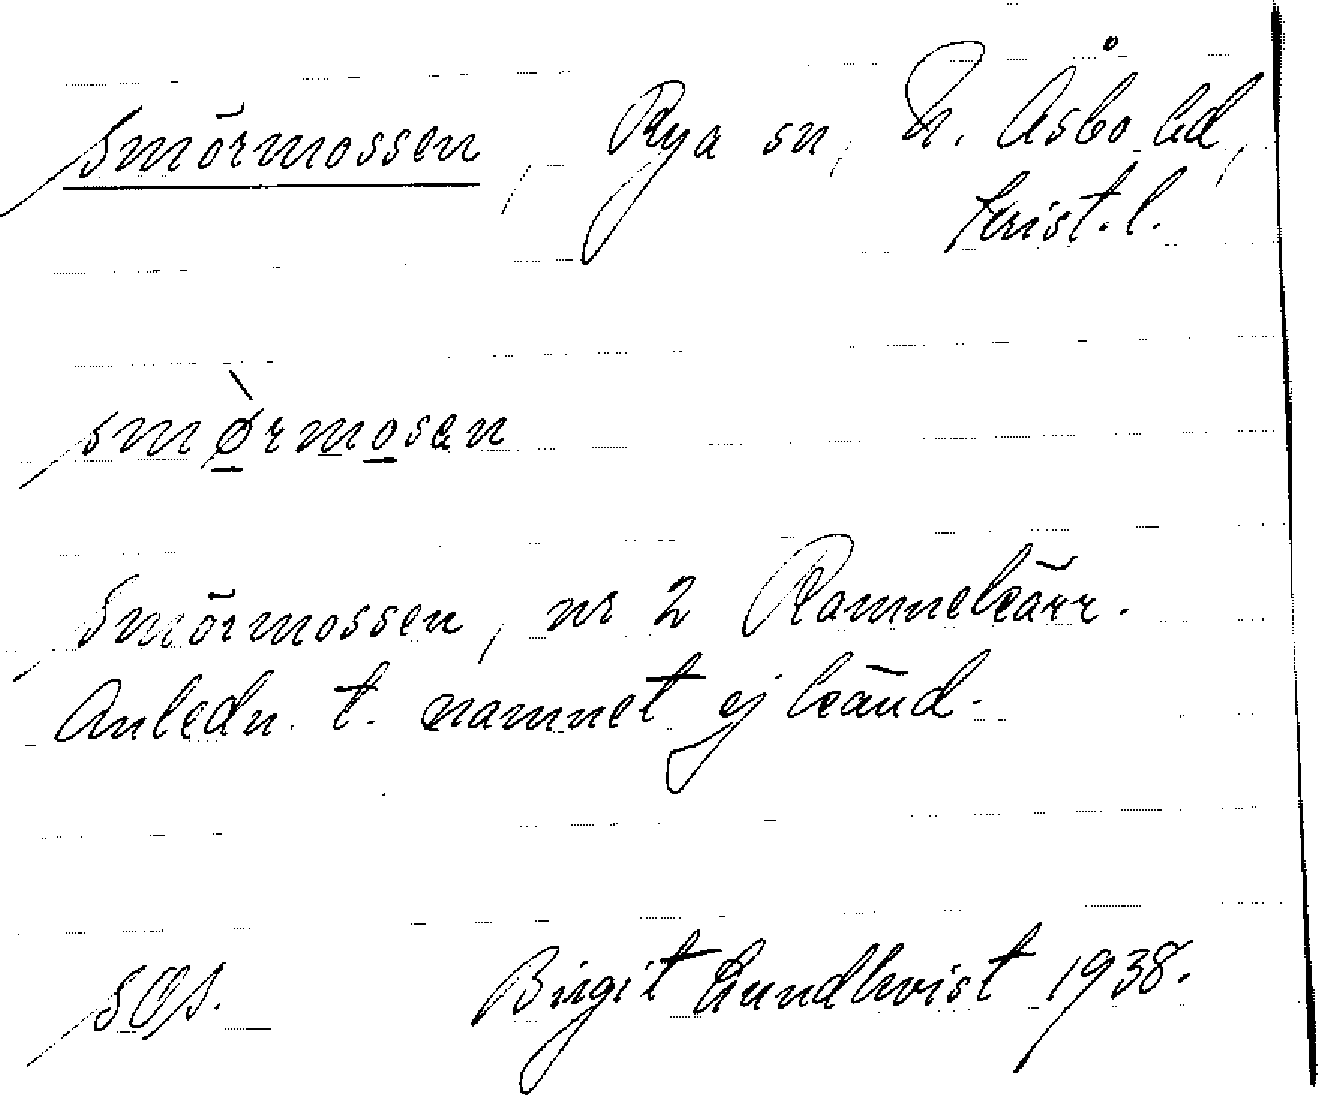 Smörmossen, Rya sn, N. Åsbo hd,
Krist. l.
smø̀rmosen
Smörmossen, nr 2 Ramnekärr.
Anledn. t. namnet ej känd.
Birgit Lundkvist 1938.